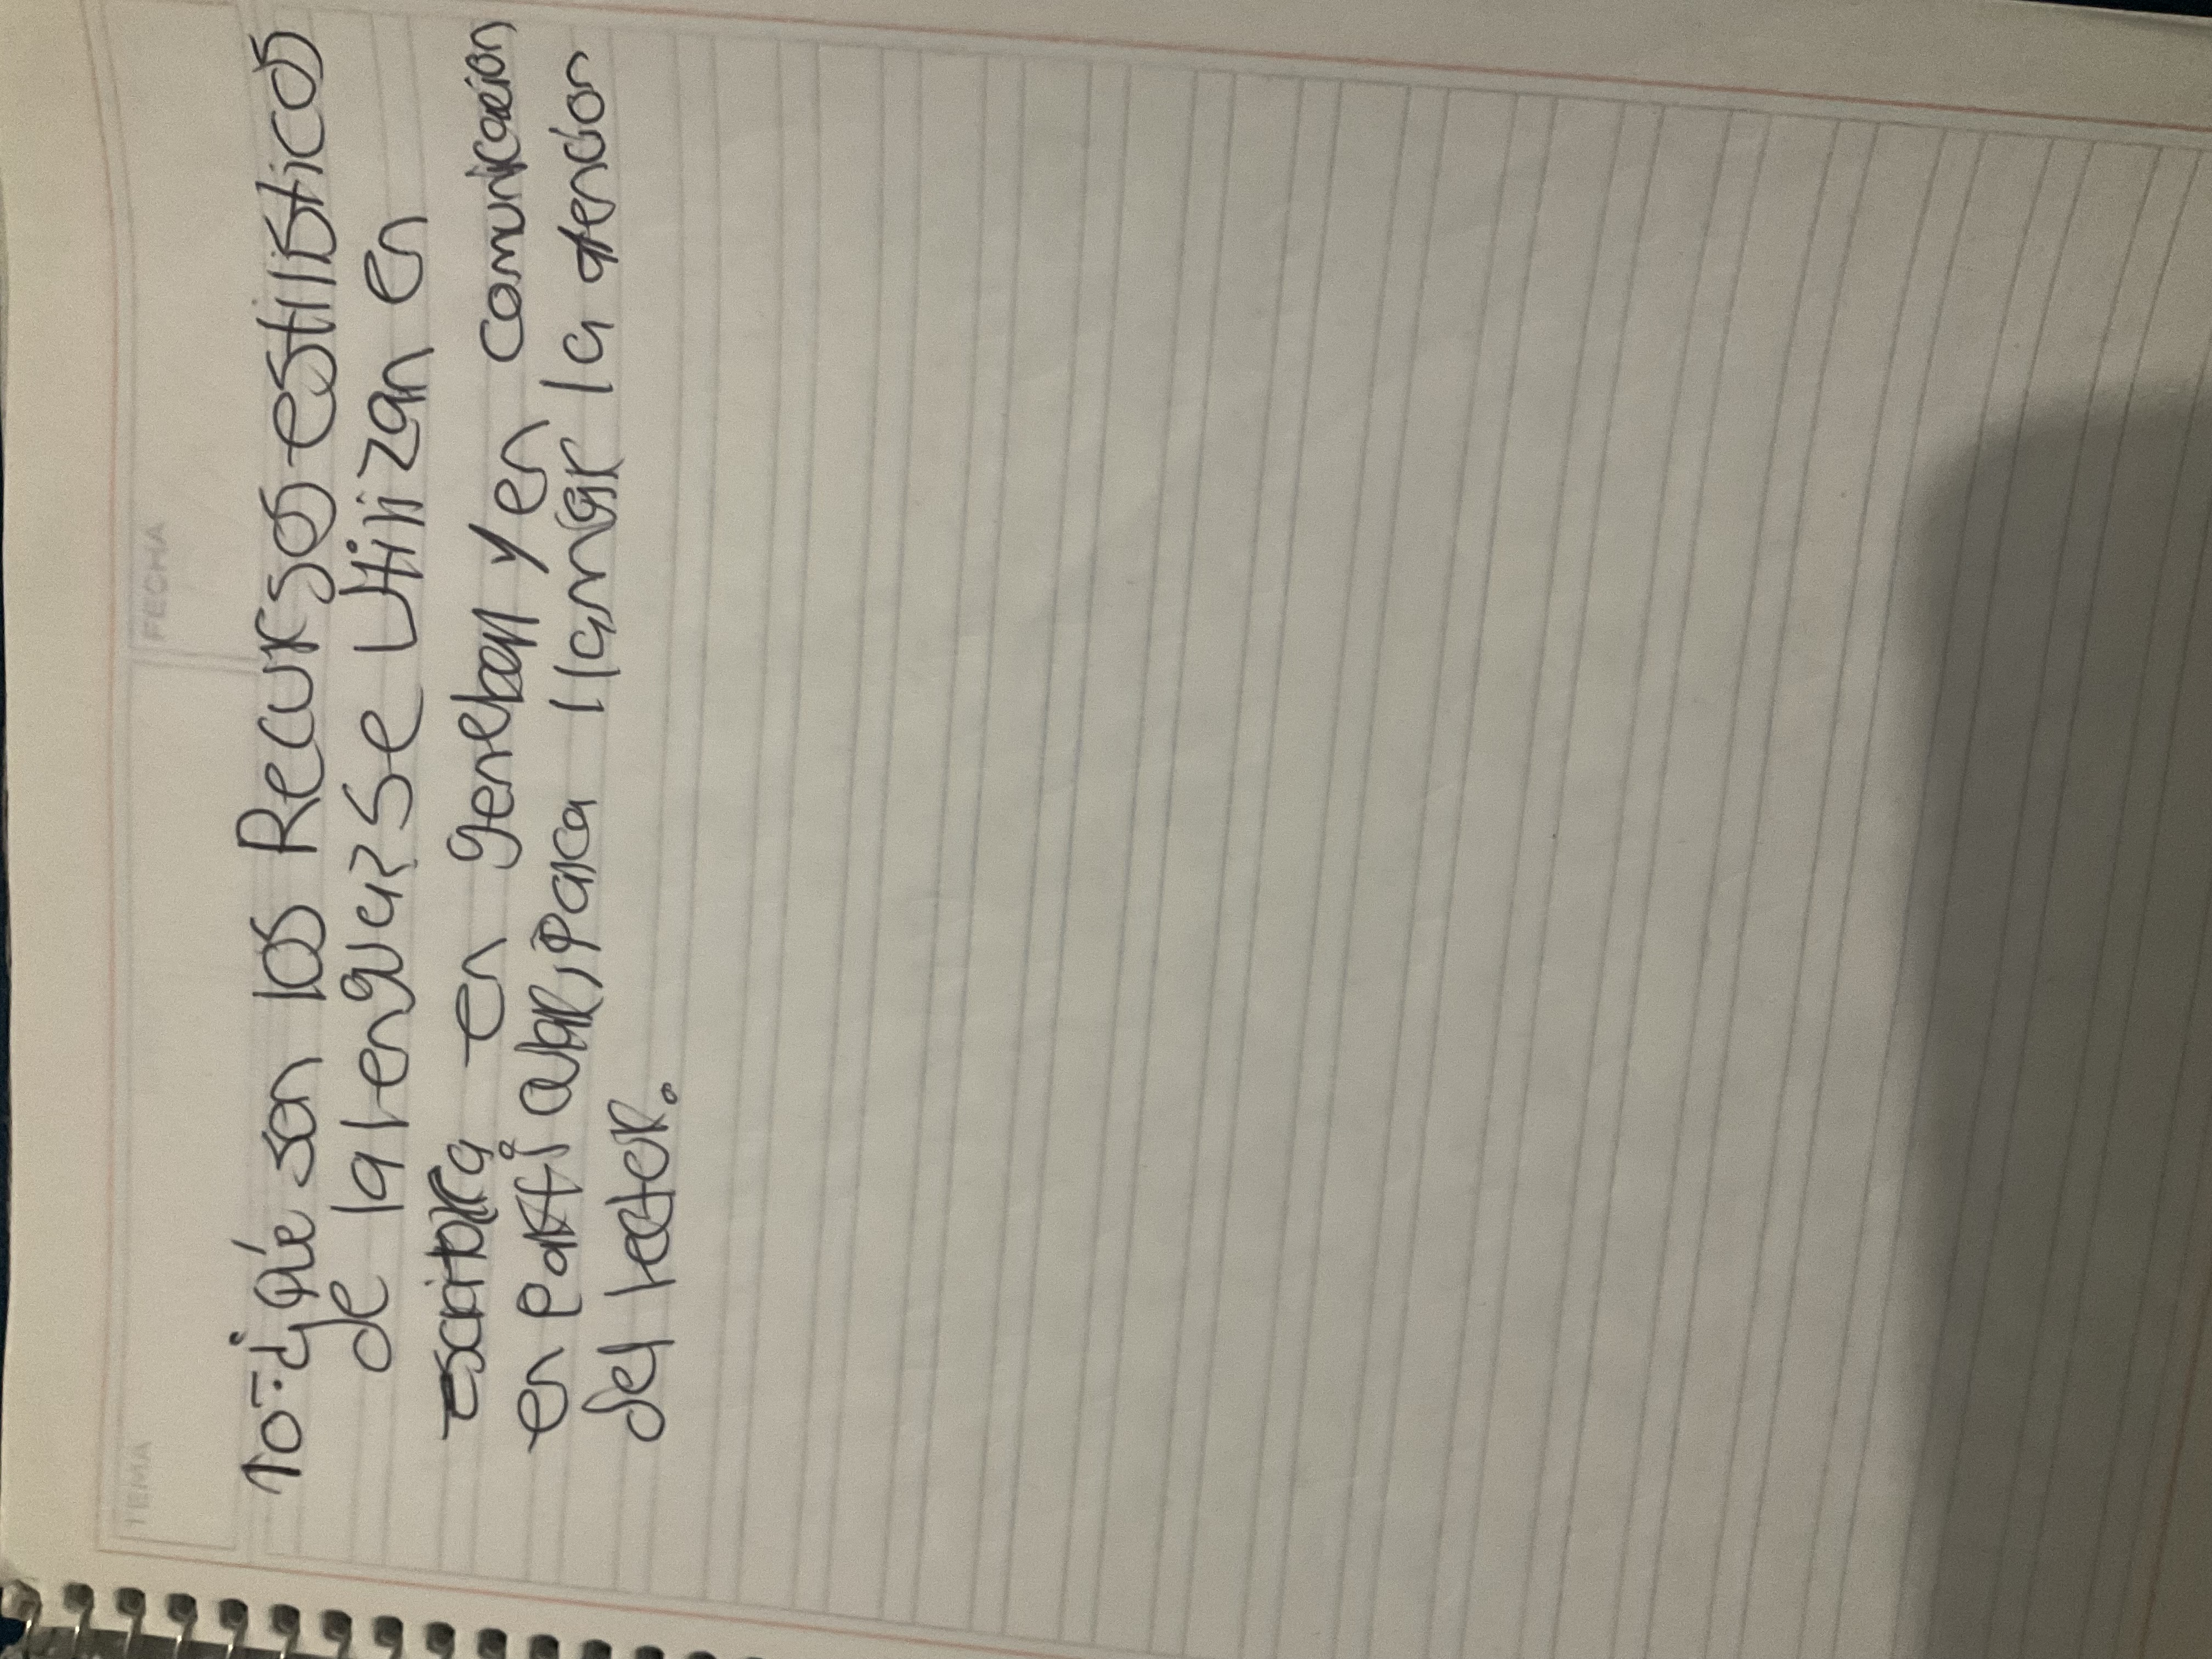 TEMA FECHA
10-¿Qué son los Recursos estilísticos
de la lengua? Se Utilizan en
escritora en general y en comunicación
en particular, para llamar la atención
del lector.